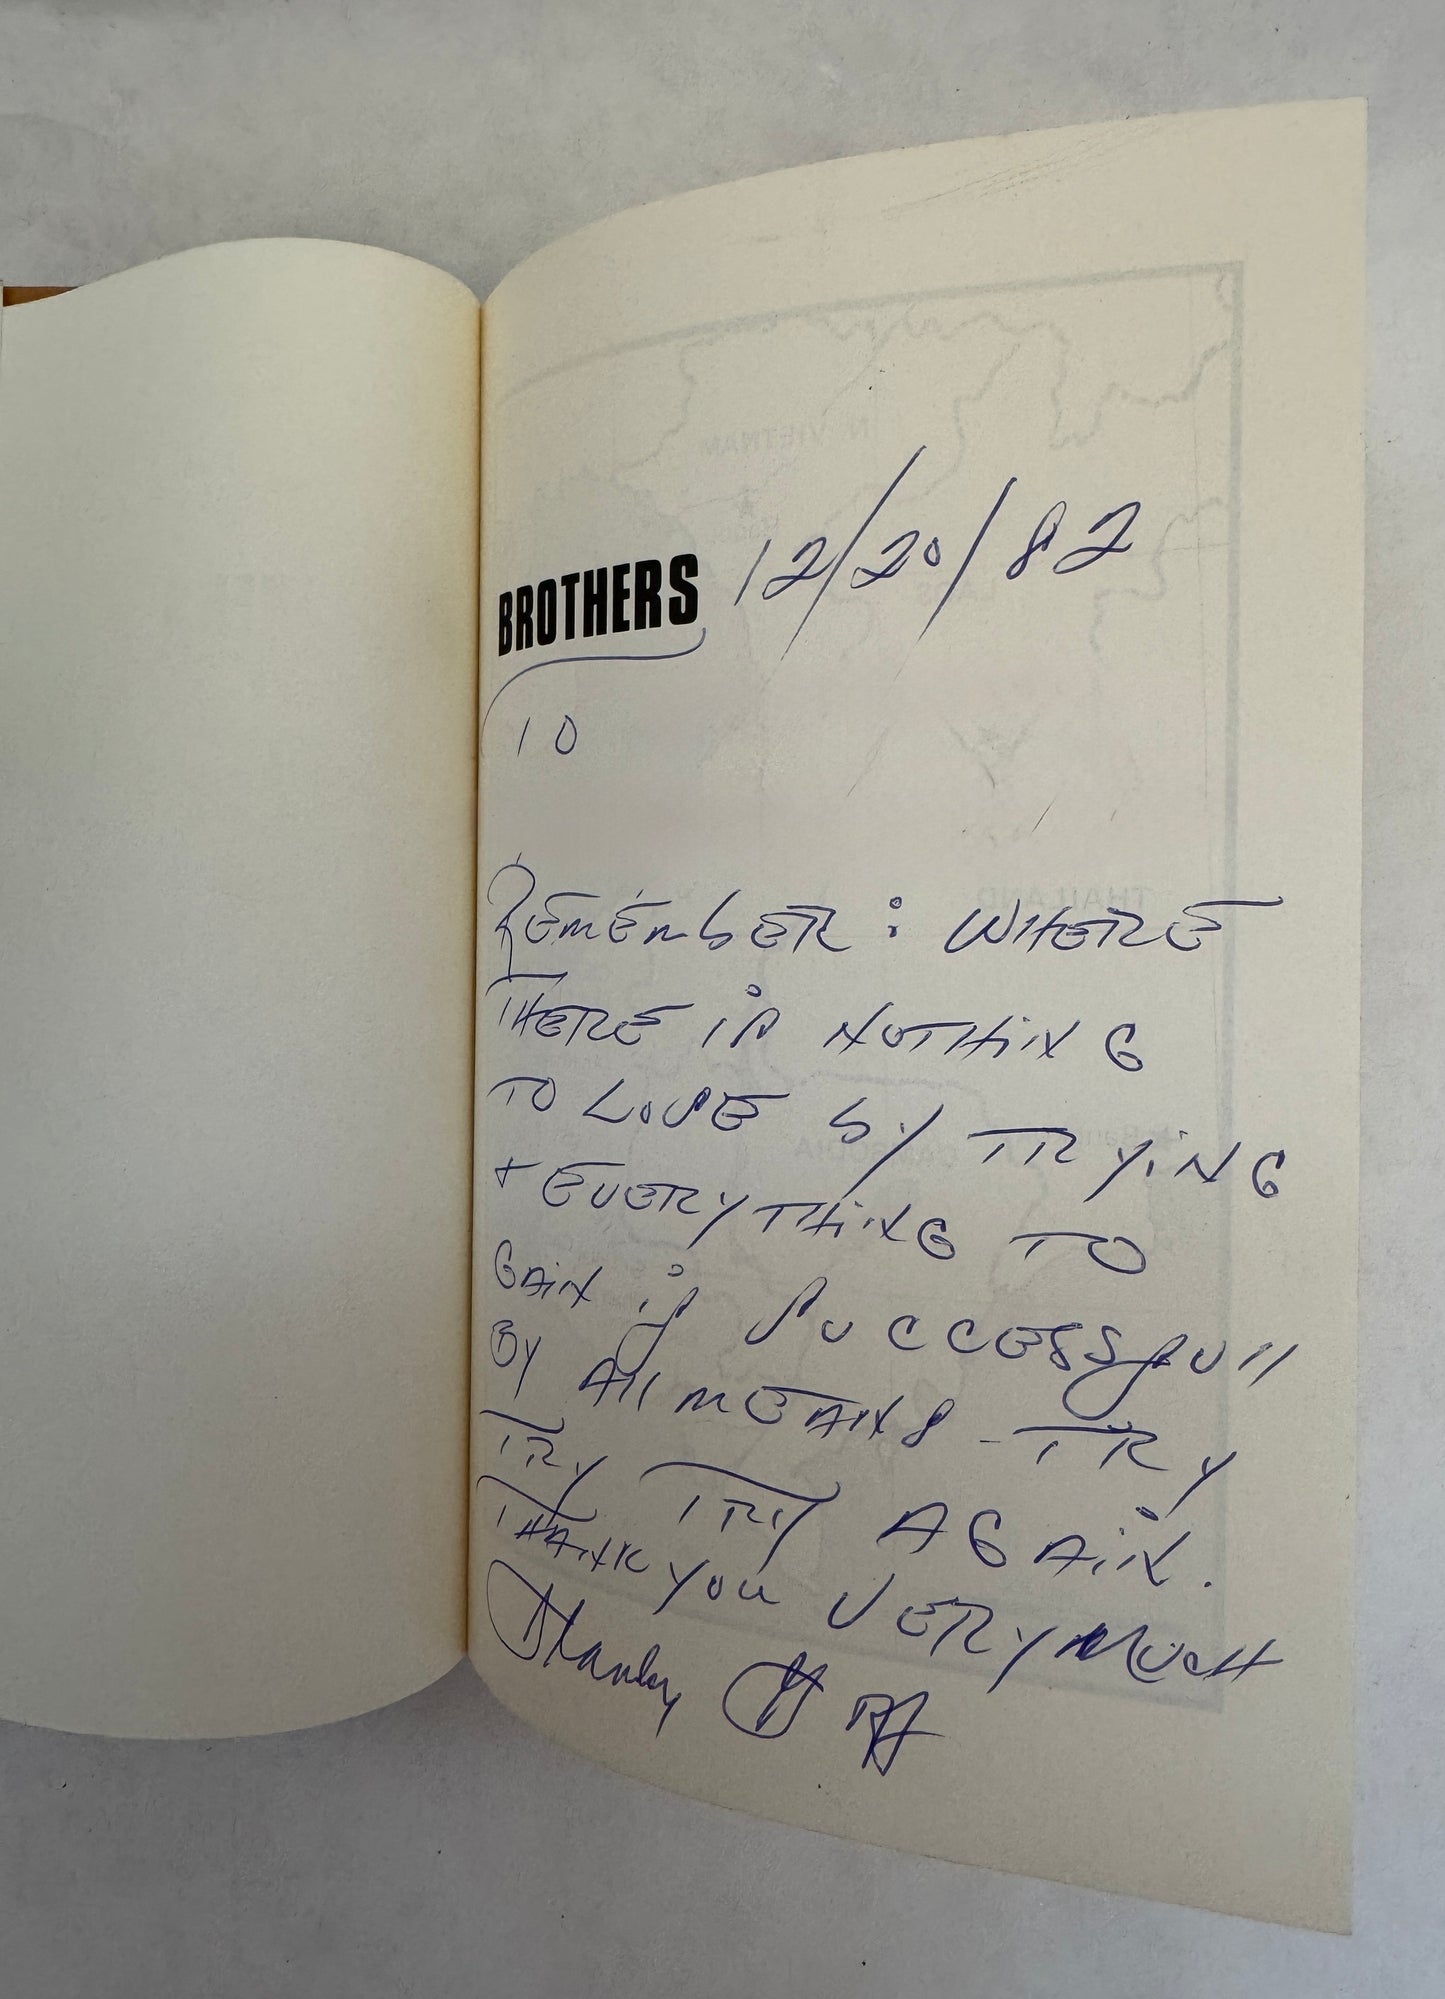 BROTHERS 12/20/82
10
REMEMbER: WHERE
THERE is NOTHiNG
TO LOSE by TRYiNG
+ EVERYTHiNG TO
GAiN if SUCCESSfull
BY All MEANS - TRY
TRY TRY AGAiN.
THANK YOU VERY MUCH
Stanley Goff
N VIETNAM
THAILAND